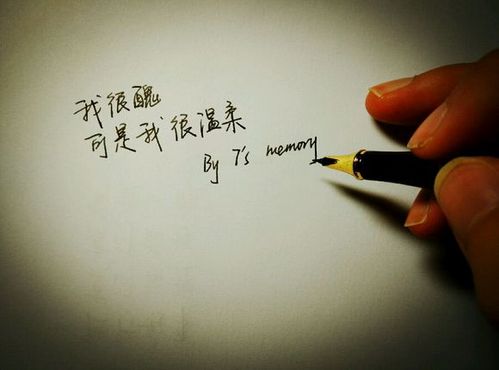 我很醜
可是我很温柔
By 7's memory